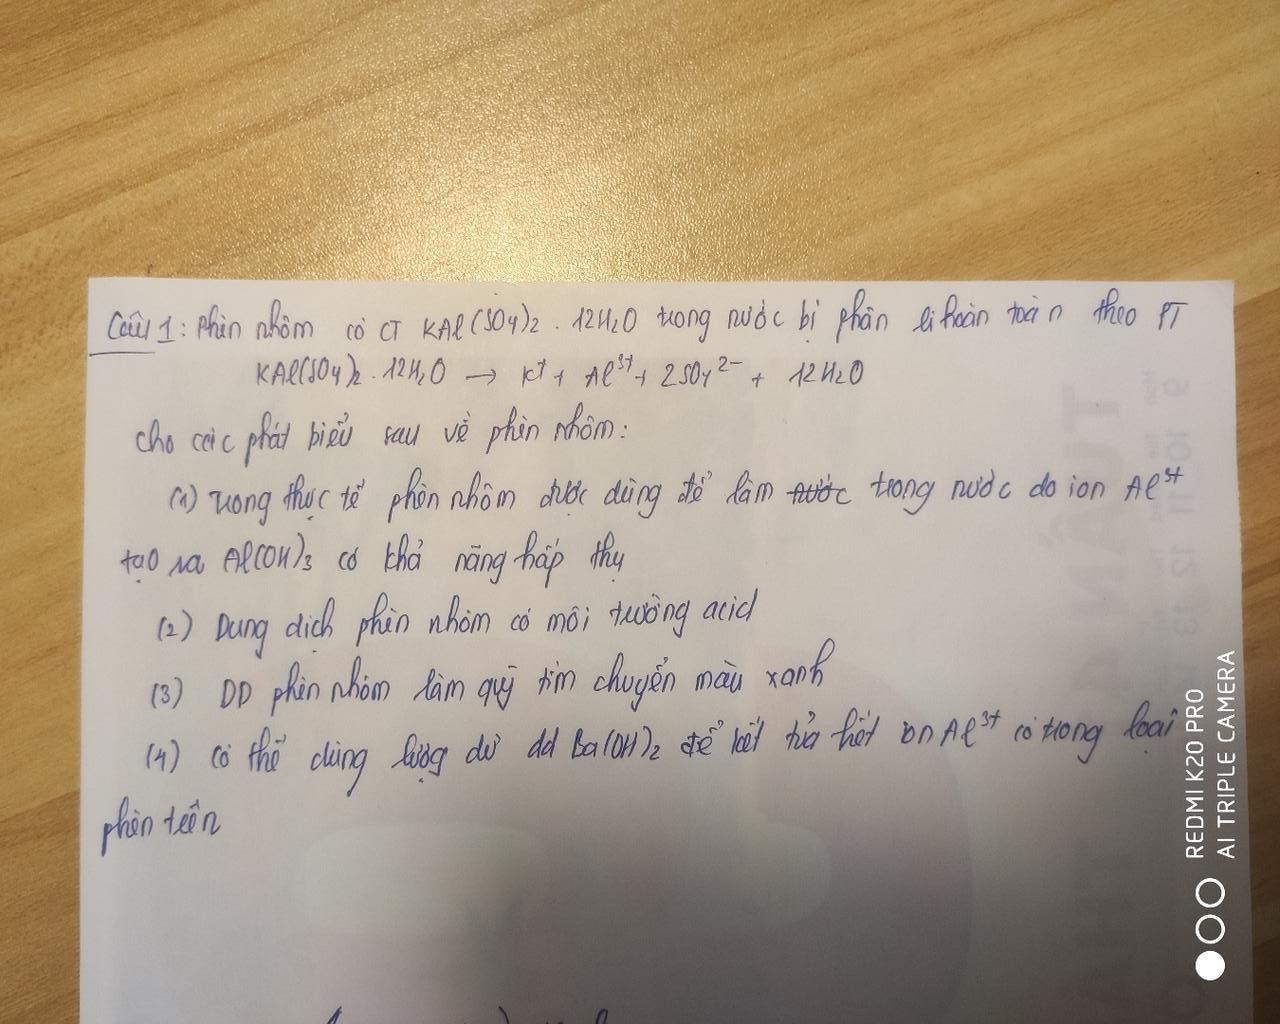 Câu 1: Phèn nhôm có CT KAl(SO4)2 . 12H2O trong nước bị phân li hoàn toàn theo PT
KAl(SO4)2 . 12H2O → K+ + Al3+ + 2SO4 2- + 12H2O
Cho các phát biểu sau về phèn nhôm:
(1) trong thực tế phèn nhôm được dùng để làm nước trong nước do ion Al3+
tạo ra Al(OH)3 có khả năng hấp thụ
(2) Dung dịch phèn nhôm có môi trường acid
(3) DD phèn nhôm làm quỳ tím chuyển màu xanh
(4) có thể dùng lượng dư dd Ba(OH)2 để kết tủa hết ion Al3+ có trong loại
phèn trên
REDMI K20 PRO
AI TRIPLE CAMERA